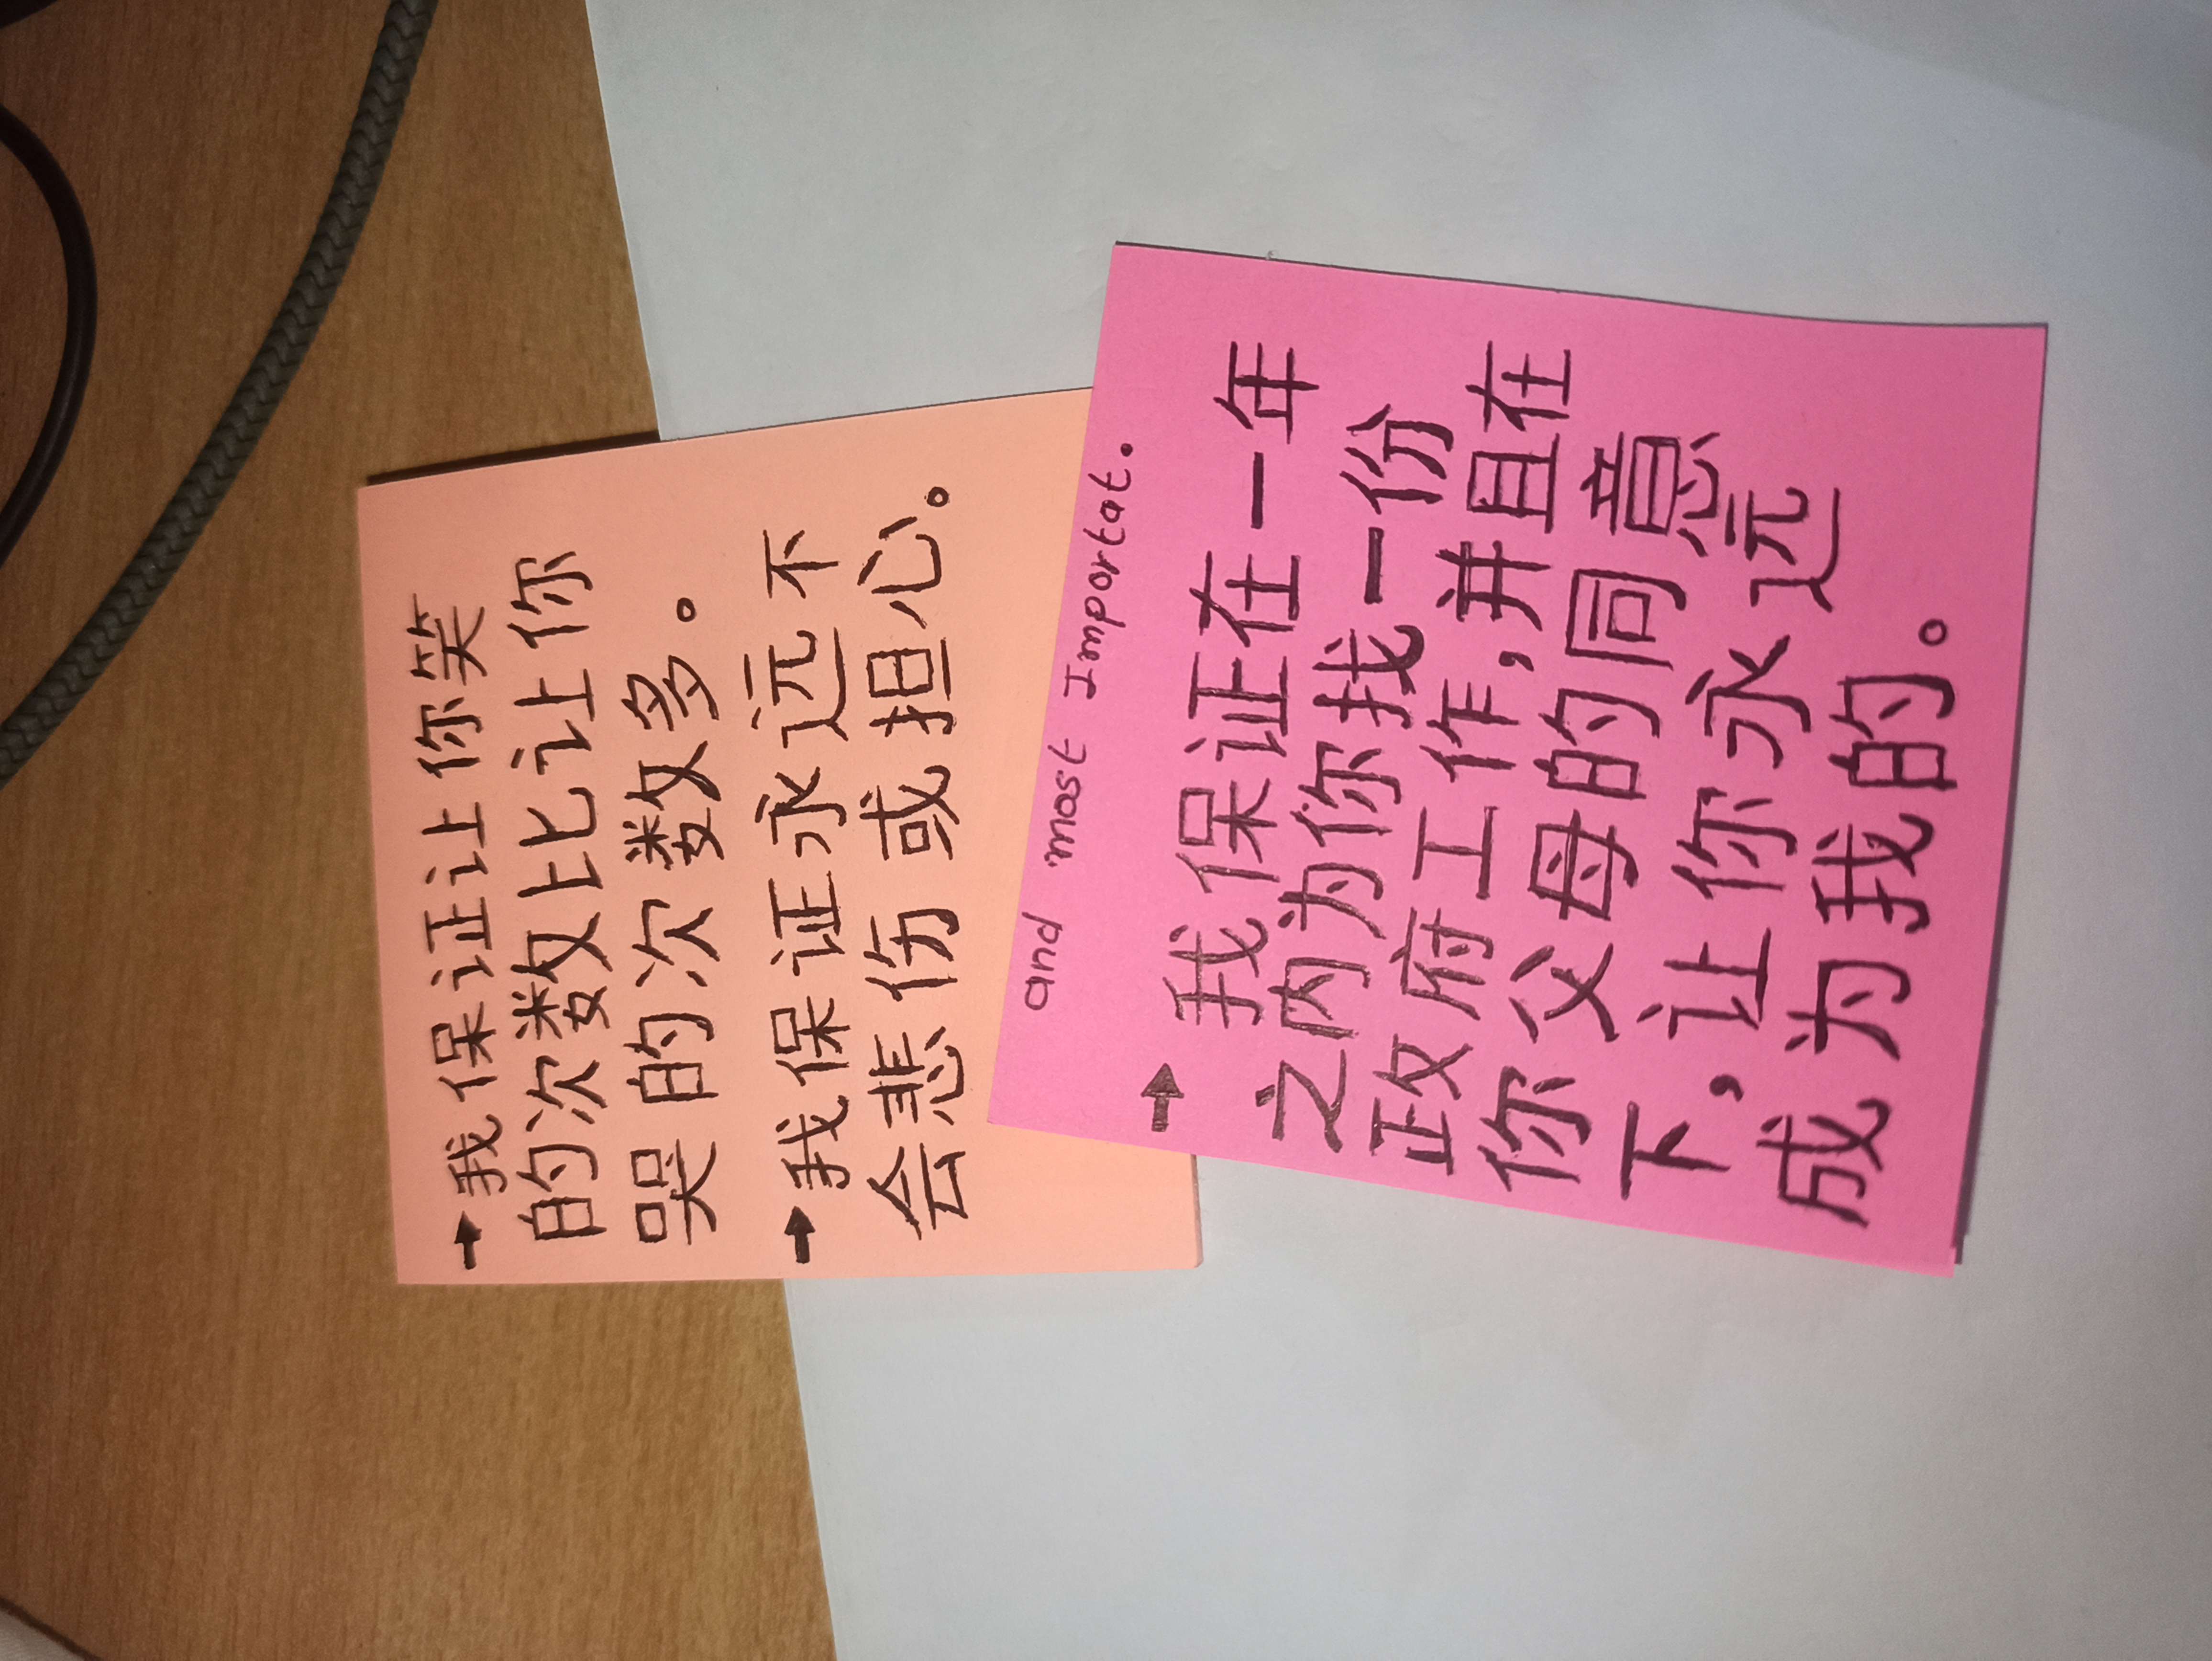 →我保证让你笑
的次数比让你
哭的次数多。
→我保证永远不
会悲伤或担心。
and most Importat.
→ 我保证在一年
之内为你找一份
政府工作,并且在
你父母的同意
下,让你永远
成为我的。